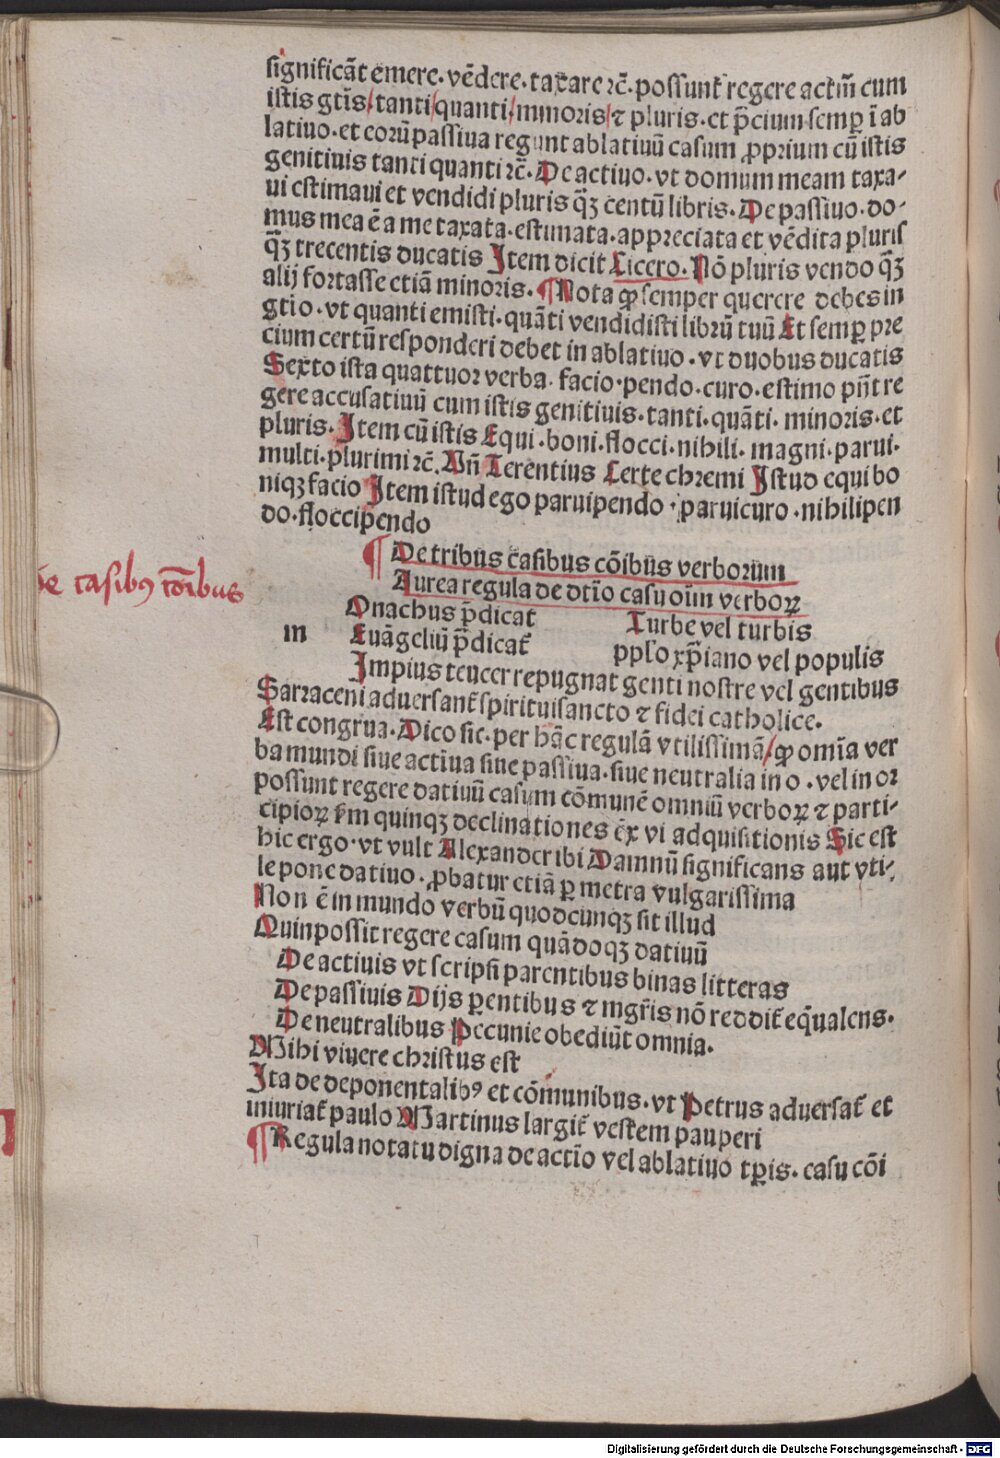 significãt emere. vẽdere. taxare ⁊c̃. possunt regere actm̃ cum
istis gtĩs/ tanti/ quanti/ minoris/ ⁊ pluris. et p̃cium semꝑ ĩ ab
latiuo. et eorũ passiua regunt ablatiuũ casum ꝓprium cũ istis
genitiuis tanti quanti ⁊c̃. De actiuo. vt domum meam taxa-
ui estimaui et vendidi pluris q̃ꝫ centũ libris. De passiuo. do-
mus mea ẽ a me taxata. estimata. appreciata et vẽdita pluris
q̃ꝫ trecentis ducatis Item dicit Cicero. Nõ pluris vendo q̃ꝫ
alij fortasse etiã minoris. ¶ Nota ꝙ semper querere debes in
gtio. vt quanti emisti. quãti vendidisti librũ tuũ Et semꝑ pre
cium certũ responderi debet in ablatiuo. vt duobus ducatis
Sexto ista quattuor verba. facio. pendo. curo. estimo pñt re
gere accusatiuũ cum istis genitiuis. tanti. quãti. minoris. et
pluris. Item cũ istis Equi. boni. flocci. nihili. magni. parui.
multi. plurimi ⁊c̃. Vñ Terentius Certe chremi Istud equi bo
niqꝫ facio Item istud ego paruipendo. paruicuro. nihilipen
do. floccipendo
¶ De tribus casibus cõibus verborum
Aurea regula de dtĩo casu oĩm verboꝝ
De casibꝰ cõibus
Onachus p̃dicat Turbe vel turbis
m Euãgeliũ p̃dicat̃ ppľo xp̃iano vel populis
Impius teucer repugnat genti nostre vel gentibus
Sarraceni aduersant̃ spirituisancto ⁊ fidei catholice.
Est congrua. Dico sic. per hãc regulã vtilissimã/ ꝙ omĩa ver
ba mundi siue actiua siue passiua. siue neutralia in o. vel in or
possunt regere datiuũ casum cõmunẽ omniũ verboꝝ ⁊ parti-
cipioꝝ f̃m quinqꝫ declinationes ex vi adquisitionis Sic est
hic ergo. vt vult Alexander ibi Damnũ significans aut vti-
le pone datiuo. ꝓbatur etiã ꝑ metra vulgarissima
Non ẽ in mundo verbũ quodcunqꝫ sit illud
Quin possit regere casum quãdoqꝫ datiuũ
De actiuis vt scripsi parentibus binas litteras
De passiuis Dijs ꝑentibus ⁊ mgr̃is nõ reddit̃ eq̃ualens.
De neutralibus Pecunie obediũt omnia.
Mihi viuere christus est
Ita de deponentalibꝰ et cõmunibus. vt Petrus aduersat̃ et
iniuriat̃ paulo Martinus largit̃ vestem pauperi
¶ Regula notatu digna de actĩo vel ablatiuo tꝑis. casu cõi
Digitalisierung gefördert durch die Deutsche Forschungsgemeinschaft - DFG